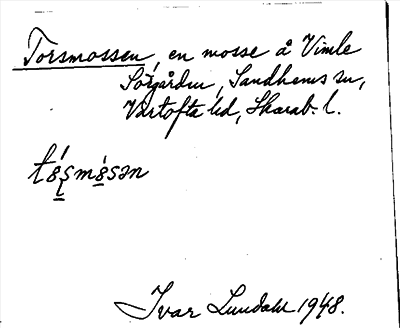 Torsmossen, en mosse å Vimle
Sörgården, Sandhems sn,
Vartofta hd, Skarab. l.
Ivar Lundahl 1948.